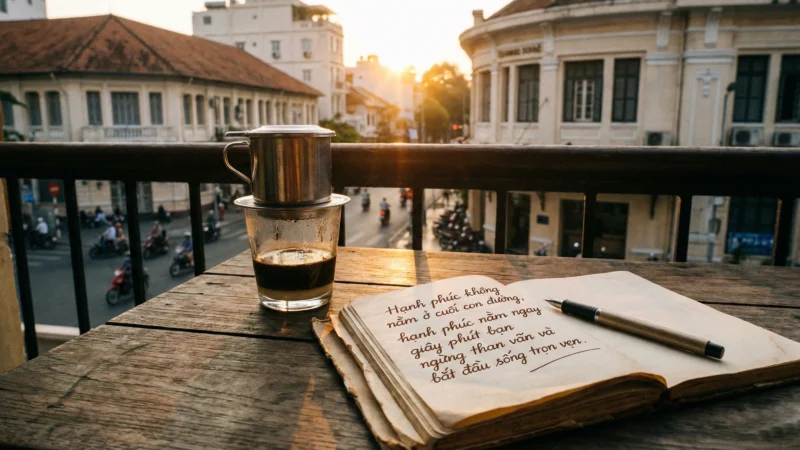 Hạnh phúc không
nằm ở cuối con đường,
hạnh phúc nằm ngay
giây phút bạn
ngừng than vãn và
bắt đầu sống trọn vẹn.